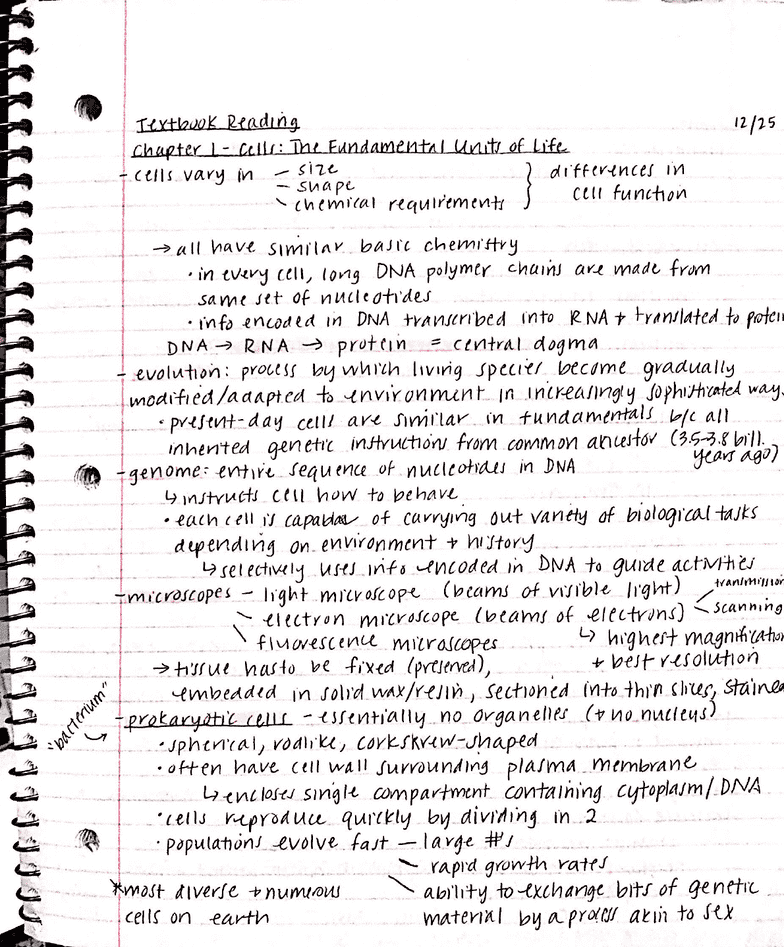 Textbook Reading 12/25
Chapter 1 - Cells: The Fundamental Units of Life
- cells vary in - size } differences in
- shape cell function
- chemical requirements
→ all have similar basic chemistry
• in every cell, long DNA polymer chains are made from
same set of nucleotides
• info encoded in DNA transcribed into RNA + translated to potein
DNA → RNA → protein = central dogma
- evolution: process by which living species become gradually
modified/adapted to environment in increasingly sophisticated way
• present-day cells are similar in fundamentals b/c all
inherited genetic instructions from common ancestor (3.5-3.8 bill.
years ago)
- genome: entire sequence of nucleotides in DNA
↳ instructs cell how to behave
• each cell is capable of carrying out variety of biological tasks
depending on environment + history
↳ selectively uses info encoded in DNA to guide activities
- microscopes - light microscope (beams of visible light) transmission
- electron microscope (beams of electrons) < scanning
- fluorescence microscopes ↳ highest magnification
→ tissue has to be fixed (preserved), + best resolution
embedded in solid wax/resin, sectioned into thin slices, stained
"bacterium" → - prokaryotic cells - essentially no organelles (+ no nucleus)
• spherical, rodlike, corkskrew-shaped
• often have cell wall surrounding plasma membrane
↳ encloses single compartment containing cytoplasm/DNA
• cells reproduce quickly by dividing in 2
• populations evolve fast - large #'s
- rapid growth rates
*most diverse + numerous - ability to exchange bits of genetic
cells on earth material by a process akin to sex